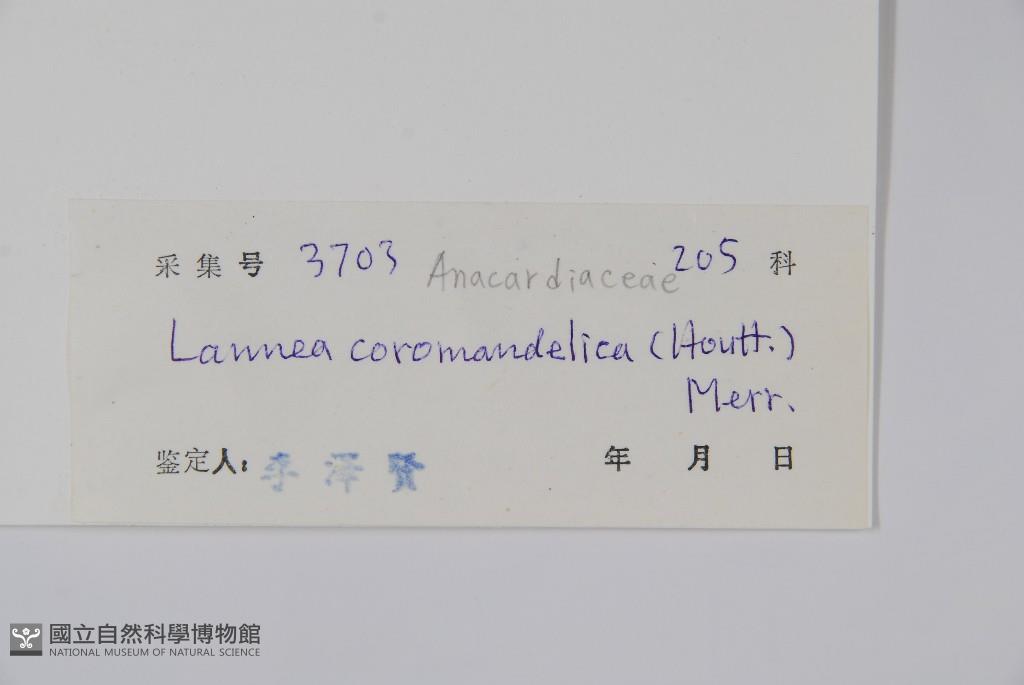 采集号 3703 Anacardiaceae 205 科
Lannea coromandelica (Houtt.)
Merr.
鉴定人: 李泽贤 年 月 日
國立自然科學博物館
NATIONAL MUSEUM OF NATURAL SCIENCE